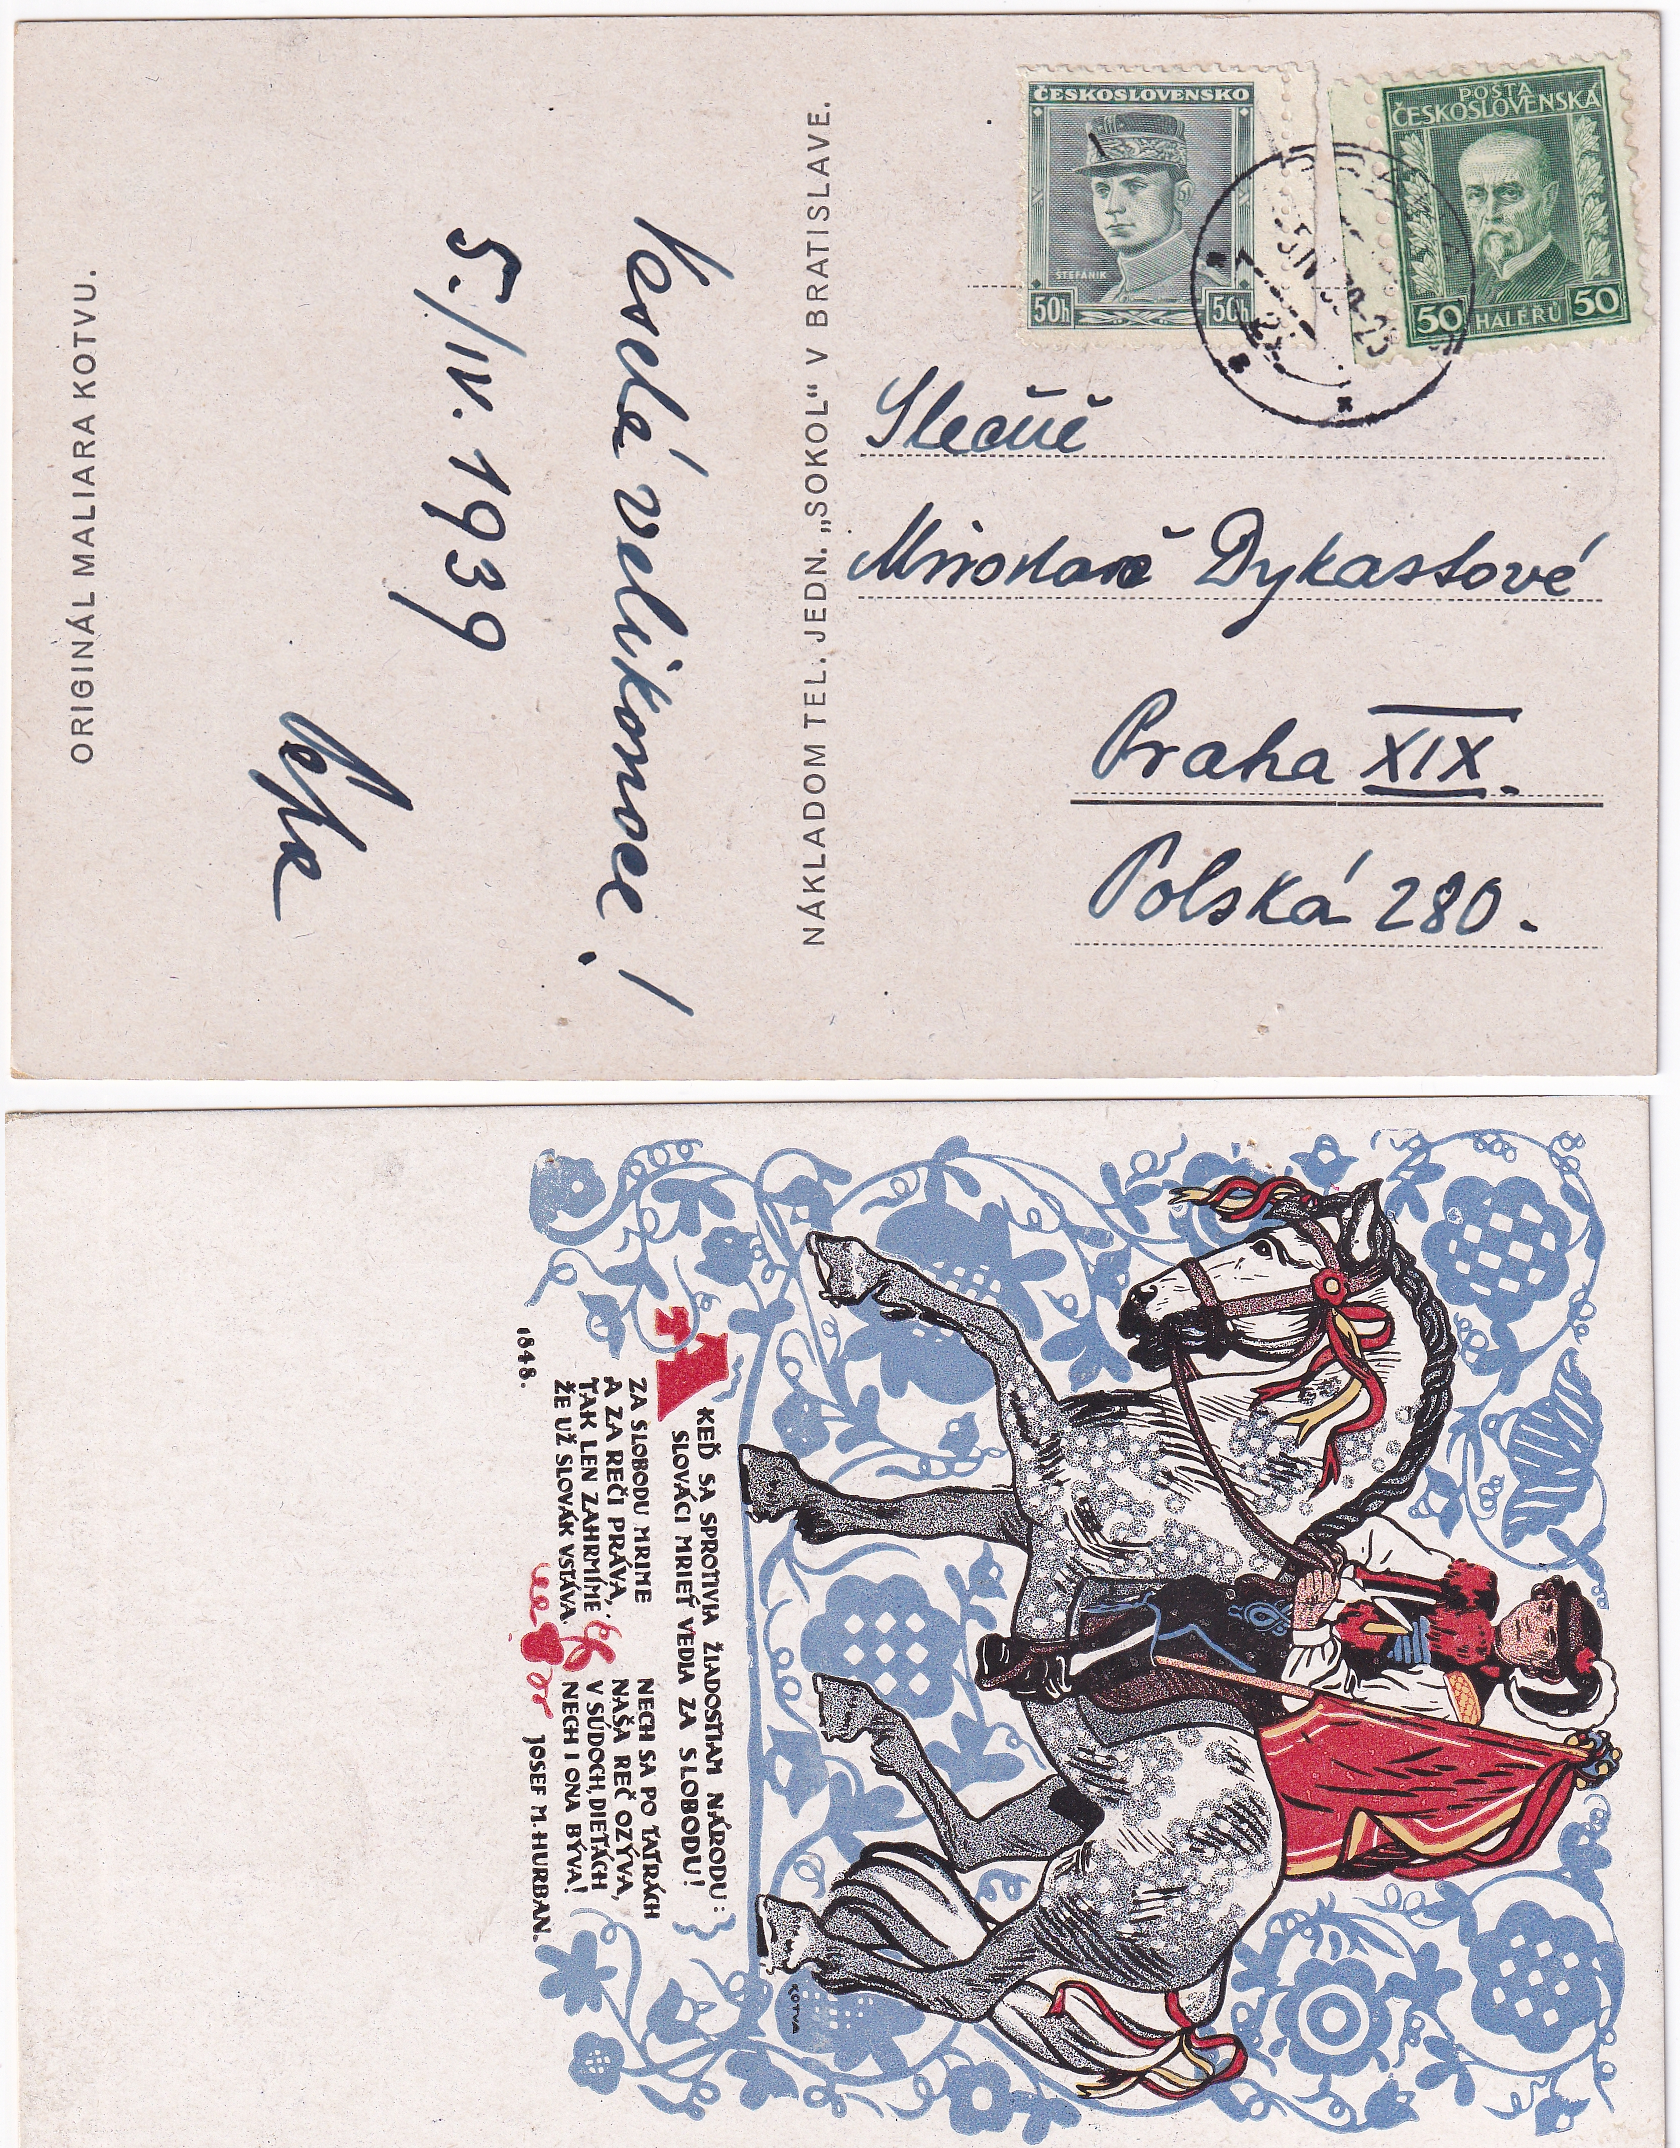 ORIGINÁL MALIARA KOTVU.
Veselé velikonoce!
5./IV. 1939
NÁKLADOM TEL. JEDN. „SOKOL“ V BRATISLAVE.
ČESKOSLOVENSKO
ŠTEFÁNIK
50h 50h
POŠTA
ČESKOSLOVENSKÁ
50 HALÉŘŮ 50
Slečně
Miroslavě Dykastové
Praha XIX.
Polská 280.
A KEĎ SA SPROTIVIA ŽIADOSTIAM NÁRODU:
SLOVÁCI MRIEŤ VEDIA ZA SLOBODU!
ZA SLOBODU MRIME
A ZA REČI PRÁVA,
TAK LEN ZAHRMÍME
ŽE UŽ SLOVÁK VSTÁVA.
NECH SA PO TATRÁCH
NAŠA REČ OZÝVA,
V SÚDOCH, DIEŤACH
NECH I ONA BÝVA!
1848.
JOSEF M. HURBAN.
KOTVA